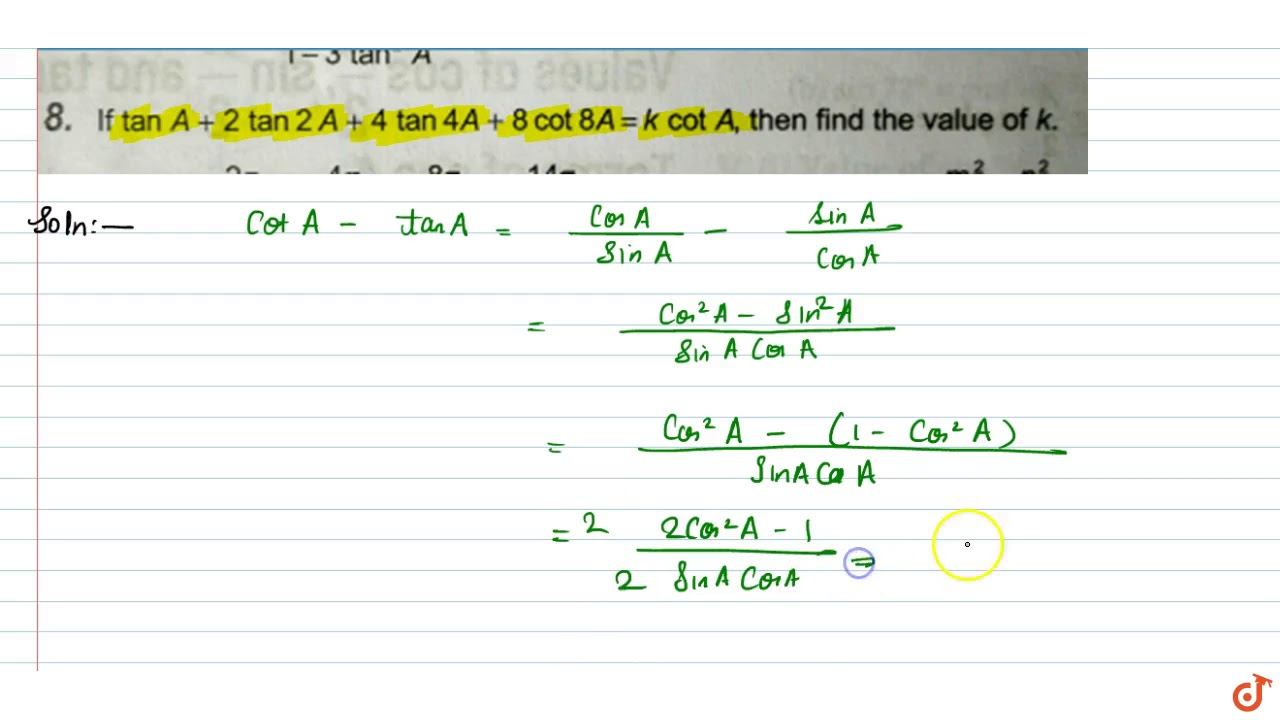 1 – 3 tan² A
8. If tan A + 2 tan 2A + 4 tan 4A + 8 cot 8A = k cot A, then find the value of k.
Soln:— Cot A – tan A = Cos A / Sin A – Sin A / Cos A
= Cos² A – Sin² A / Sin A Cos A
= Cos² A – (1 – Cos² A) / Sin A Cos A
= 2 2Cos² A – 1 / 2 Sin A Cos A =